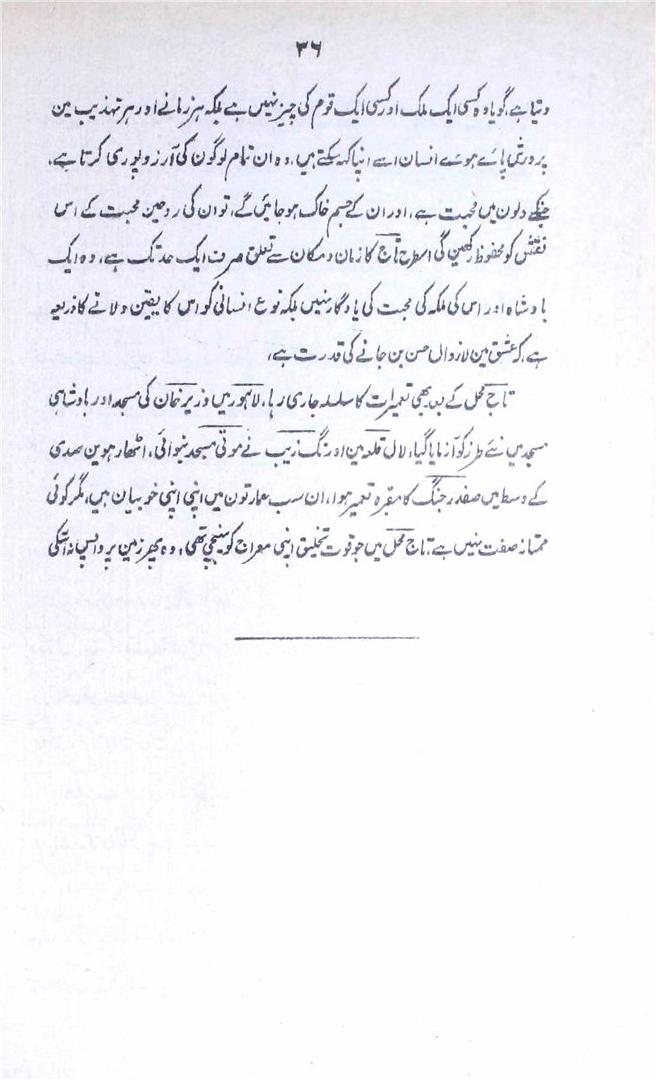 ۳۶
دیتا ہے، گویا وہ کسی ایک ملک اور کسی ایک قوم کی چیز نہیں ہے بلکہ ہر زمانے اور ہر تہذیب مین
پرورش پائے ہوئے انسان اسے اپنا کہہ سکتے ہیں، وہ ان تمام لوگون کی آرزو پوری کرتا ہے،
جنکے دلون میں محبت ہے، اور ان کے جسم خاک ہو جائیں گے، تو ان کی روحین محبت کے اس
نقش کو محفوظ رکھین گی اسطرح تاج کا زمان و مکان سے تعلق صرف ایک حد تک ہے، وہ ایک
بادشاہ اور اس کی ملکہ کی محبت کی یادگار نہیں بلکہ نوع انسانی کو اس کا یقین دلانے کا ذریعہ
ہے، کہ عشق مین لازوال حسن بن جانے کی قدرت ہے،
تاج محل کے بعد بھی تعمیرات کا سلسلہ جاری رہا، لاہور میں وزیر خان کی مسجد اور بادشاہی
مسجد میں نئے طرز کو آزمایا گیا، لال قلعہ مین اورنگ زیب نے موتی مسجد بنوائی، اٹھارہوین صدی
کے وسط میں صفدر جنگ کا مقبرہ تعمیر ہوا، ان سب عمارتون میں اپنی اپنی خوبیان ہیں، مگر کوئی
ممتاز صفت نہیں ہے، تاج محل میں جو قوت تخلیق اپنی معراج کو پہنچی تھی، وہ پھر زمین پر واپس نہ آسکی